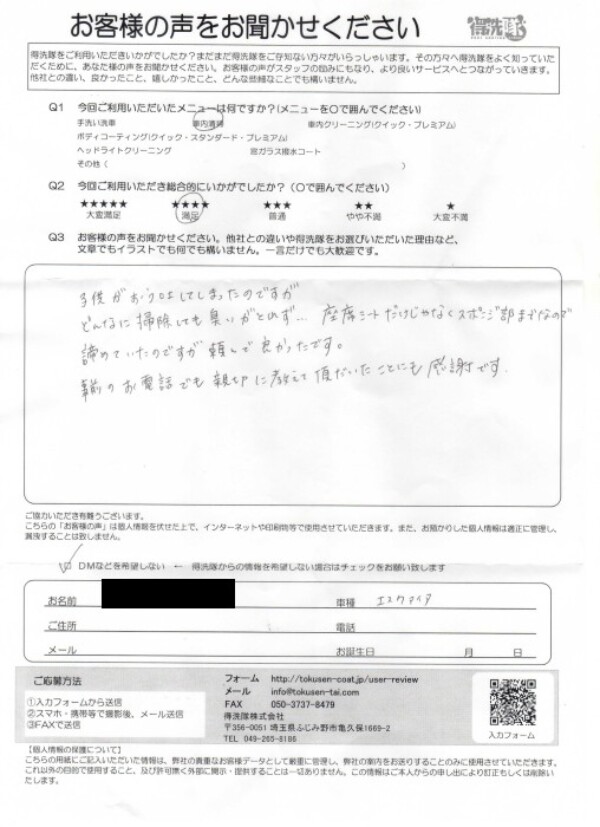 お客様の声をお聞かせください
得洗隊
得洗隊をご利用いただきいかがでしたか？まだまだ得洗隊をご存知ない方々がいらっしゃいます。その方々へ得洗隊をよく知っていた
だくために、あなた様の声をお聞かせください。お客様の声がスタッフの励みにもなり、より良いサービスへとつながっていきます。
他社との違い、良かったこと、嬉しかったこと、どんな些細なことでも構いません。
Q1 今回ご利用いただいたメニューは何ですか？(メニューを〇で囲んでください)
手洗い洗車 車内清掃 車内クリーニング(クイック・プレミアム)
ボディコーティング(クイック・スタンダード・プレミアム)
ヘッドライトクリーニング 窓ガラス撥水コート
その他 ( )
Q2 今回ご利用いただき総合的にいかがでしたか？（〇で囲んでください）
★★★★★ ★★★★ ★★★ ★★ ★
大変満足 満足 普通 やや不満 大変不満
Q3 お客様の声をお聞かせください。他社との違いや得洗隊をお選びいただいた理由など、
文章でもイラストでも何でも構いません。一言だけでも大歓迎です。
子供がおう吐してしまったのですが
どんなに掃除しても臭いがとれず… 座席シートだけじゃなくスポンジ部まであるので
諦めていたのですが頼んで良かったです。
事前のお電話でも親切に教えて頂だいたことにも感謝です。
ご協力いただき有難うございます。
こちらの「お客様の声」は個人情報を伏せた上で、インターネットや印刷物等で使用させていただきます。また、お預かりした個人情報は適正に管理し、
漏洩することは致しません。
□ DMなどを希望しない ← 得洗隊からの情報を希望しない場合はチェックをお願い致します
お名前 車種 エスクァイア
ご住所 電話
メール お誕生日 月 日
ご応募方法
①入力フォームから送信
②スマホ・携帯等で撮影後、メール送信
③FAXで送信
フォーム http://tokusen-coat.jp/user-review
メール info@tokusen-tai.com
FAX 050-3737-8479
得洗隊株式会社
〒356-0051 埼玉県ふじみ野市亀久保1669-2
TEL 049-265-8186
入力フォーム
【個人情報の保護について】
こちらの用紙にご記入いただいた情報は、弊社の貴重なお客様データとして厳重に管理し、弊社の案内をお送りすることのみに使用させていただきます。
これ以外の目的で使用すること、及び許可無く外部に開示・提供することは一切ありません。この情報はご本人からの申し出により訂正もしくは削除い
たします。